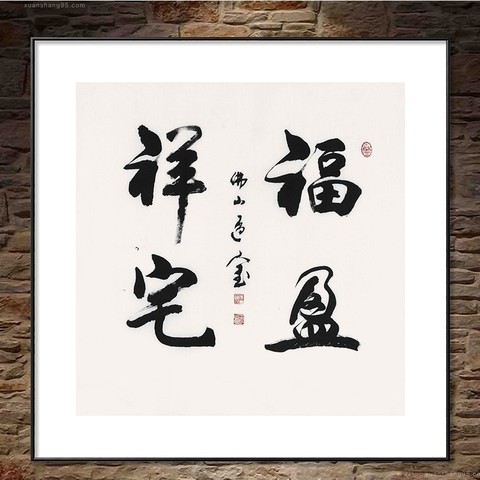 xuanshang95.com
福盈
祥宅
佛山